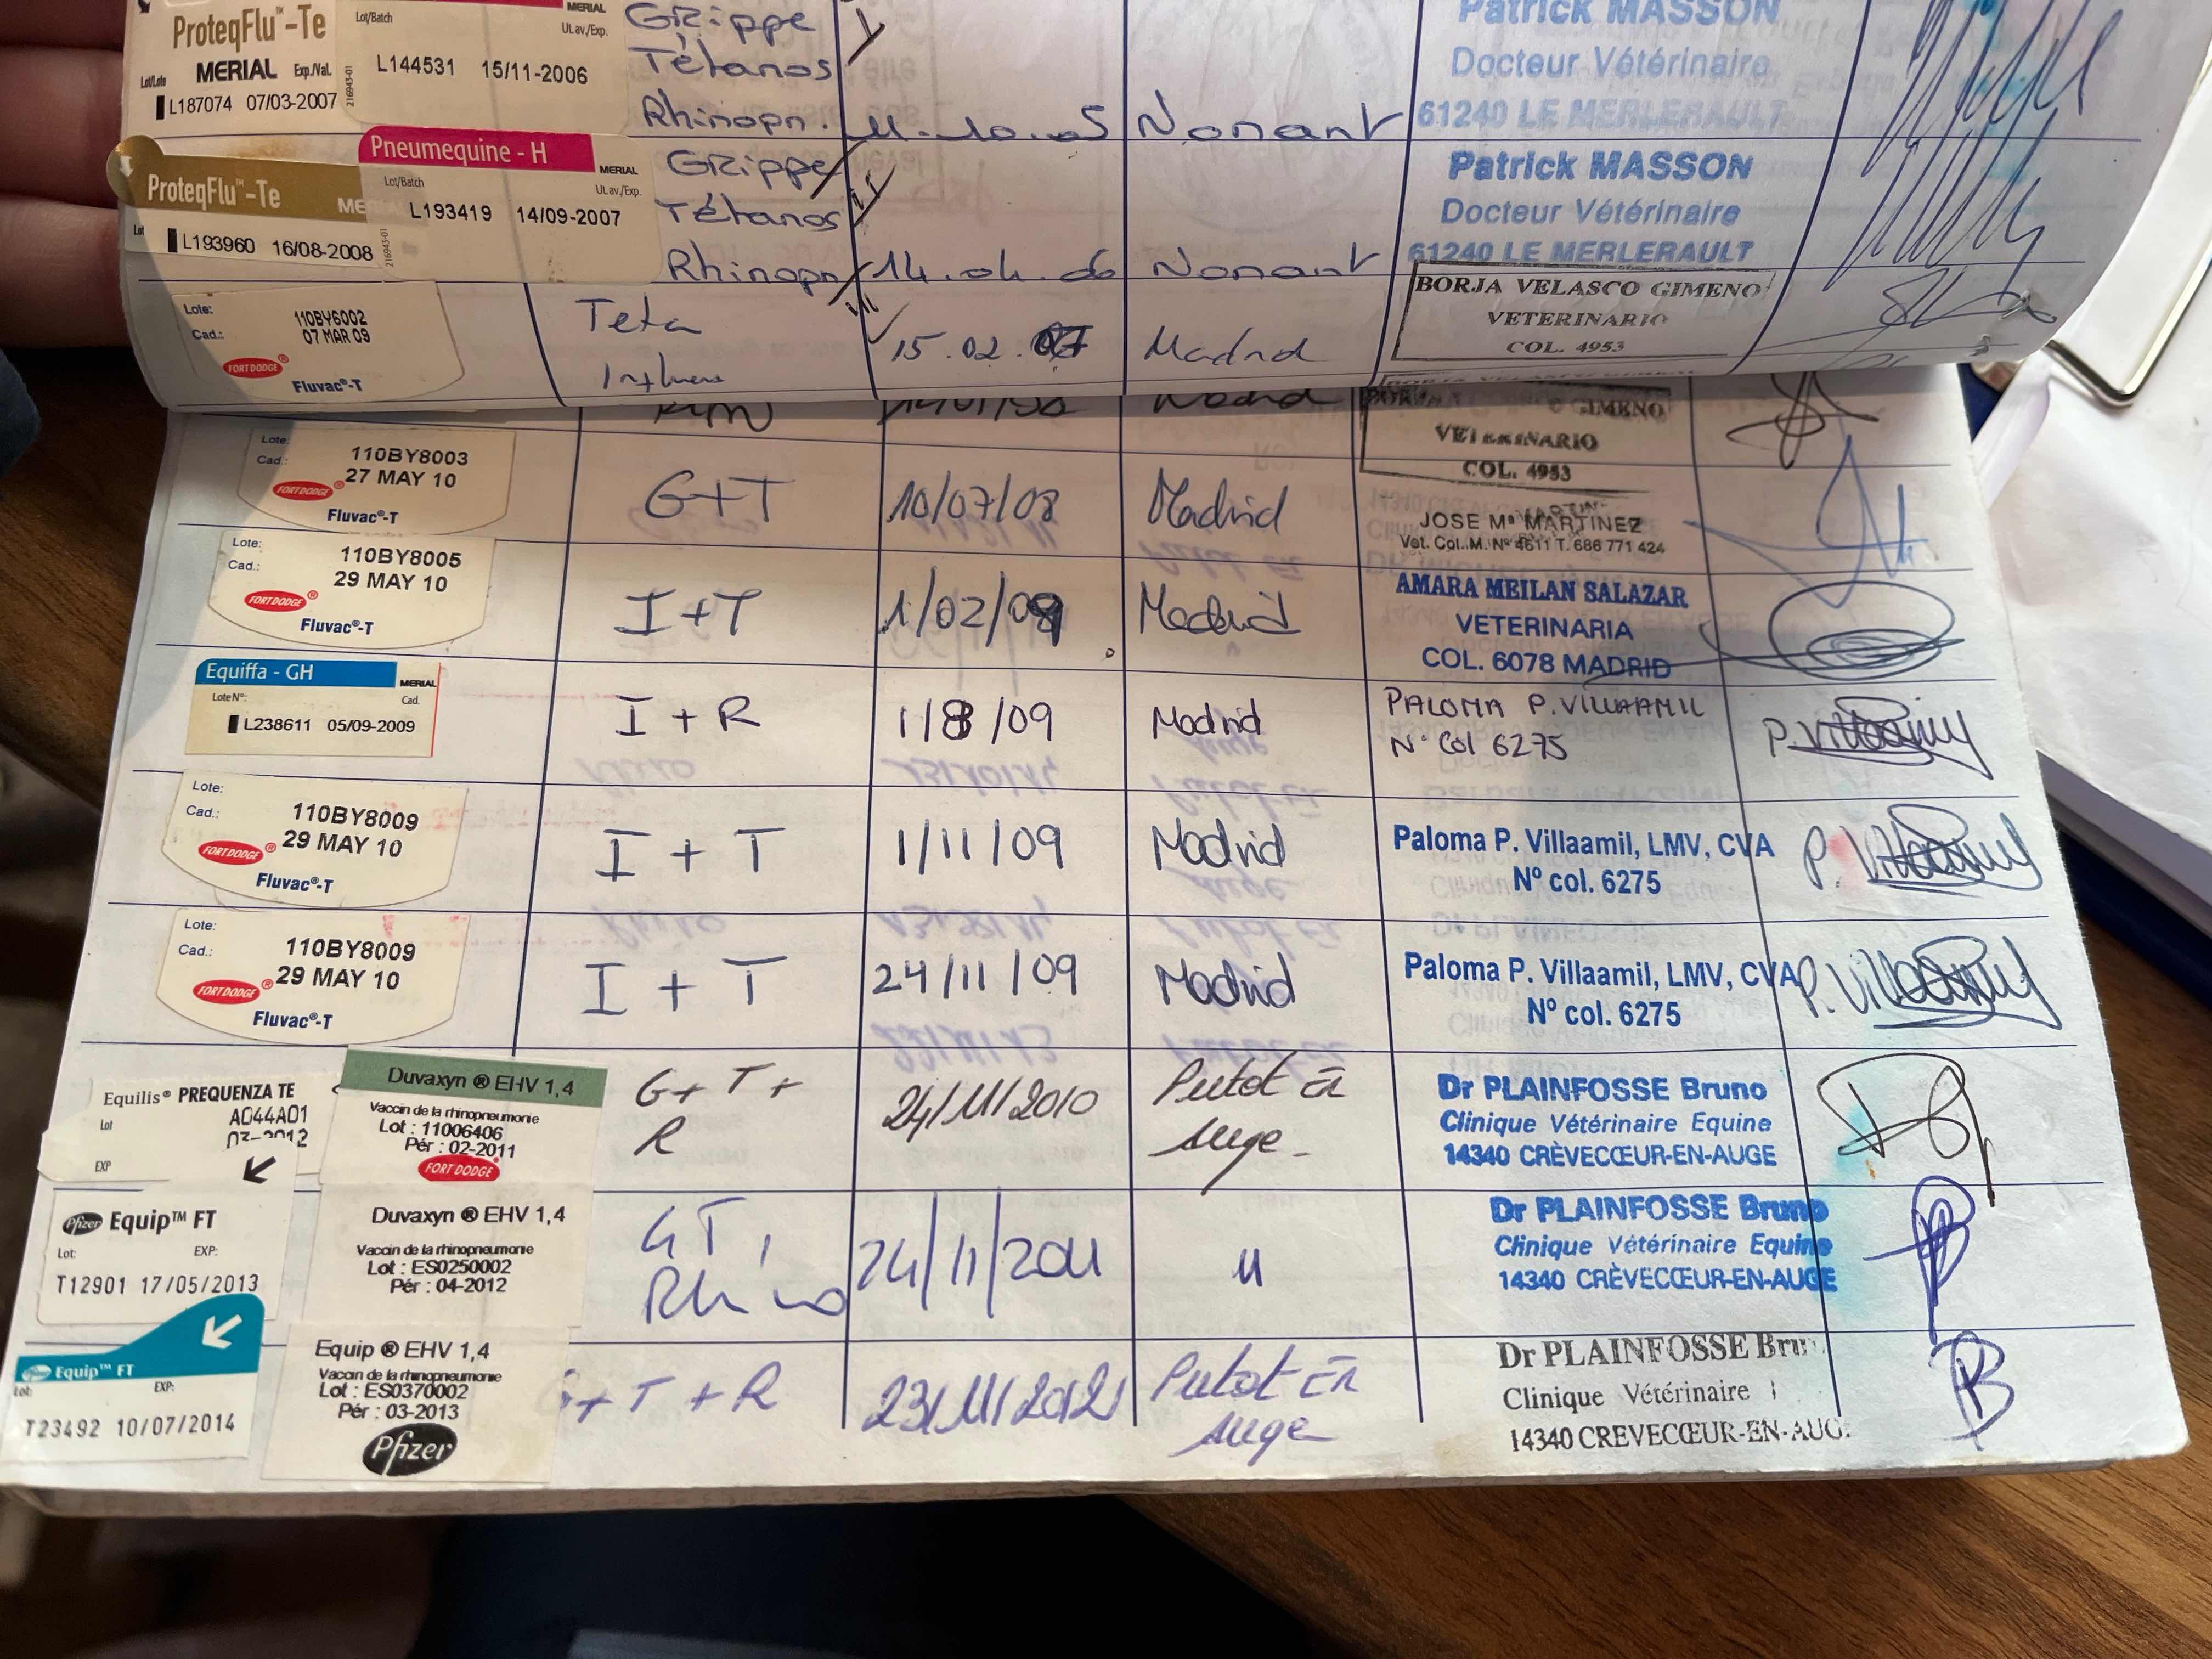 ProteqFlu™-Te
MERIAL
Lot/Lote
Exp./Val.
L187074 07/03-2007
MERIAL
Lot/Batch
Ut.av./Exp.
L144531 15/11-2006
216943-01
Grippe
Tétanos
Rhinopn.
11.10.05
Nonant
Patrick MASSON
Docteur Vétérinaire
61240 LE MERLERAULT
ProteqFlu™-Te
L193960 16/08-2008
Pneumequine - H
MERIAL
Lot/Batch
Ut. av./Exp.
L193419 14/09-2007
216943-01
Grippe
Tétanos
Rhinopn
14.04.06
Nonant
Patrick MASSON
Docteur Vétérinaire
61240 LE MERLERAULT
Lote:
110BY6002
Cad.:
07 MAR 09
FORT DODGE®
Fluvac®-T
Teta
15.02.07
Madrid
BORJA VELASCO GIMENO
VETERINARIO
COL. 4953
GIMENO
VETERINARIO
COL. 4953
Lote:
110BY8003
Cad.:
27 MAY 10
FORT DODGE®
Fluvac®-T
G+T
10/07/08
Madrid
JOSE Mª MARTINEZ
Vet. Col. M. Nº 4611 T. 686 771 424
Lote:
110BY8005
Cad.:
29 MAY 10
FORT DODGE®
Fluvac®-T
I+T
1/02/09
Madrid
AMARA MEILAN SALAZAR
VETERINARIA
COL. 6078 MADRID
Equiffa - GH
MERIAL
Lote Nº:
Cad.
L238611 05/09-2009
I + R
1/8/09
Madrid
PALOMA P. VILLAAMIL
Nº Col 6275
P. Villaamil
Lote:
110BY8009
Cad.:
29 MAY 10
FORT DODGE®
Fluvac®-T
I + T
1/11/09
Madrid
Paloma P. Villaamil, LMV, CVA
Nº col. 6275
P. Villaamil
Lote:
110BY8009
Cad.:
29 MAY 10
FORT DODGE®
Fluvac®-T
I + T
24/11/09
Madrid
Paloma P. Villaamil, LMV, CVA
Nº col. 6275
P. Villaamil
Equilis® PREQUENZA TE
Lot
A044A01
03-2012
EXP
Duvaxyn ® EHV 1,4
Vaccin de la rhinopneumonie
Lot : 11006406
Pér : 02-2011
FORT DODGE
G+ T +
R
24/11/2010
Putot en
Auge
Dr PLAINFOSSE Bruno
Clinique Vétérinaire Equine
14340 CRÈVECŒUR-EN-AUGE
Pfizer Equip™ FT
Lot:
EXP:
T12901 17/05/2013
Duvaxyn ® EHV 1,4
Vaccin de la rhinopneumonie
Lot : ES0250002
Pér : 04-2012
GT,
Rhino
24/11/2011
"
Dr PLAINFOSSE Bruno
Clinique Vétérinaire Equine
14340 CRÈVECŒUR-EN-AUGE
Pfizer Equip™ FT
Lot:
EXP:
T23492 10/07/2014
Equip ® EHV 1,4
Vaccin de la rhinopneumonie
Lot : ES0370002
Pér : 03-2013
Pfizer
+ T + R
23/11/2012
Putot en
Auge
Dr PLAINFOSSE Bru
Clinique Vétérinaire
14340 CREVECŒUR-EN-AUG